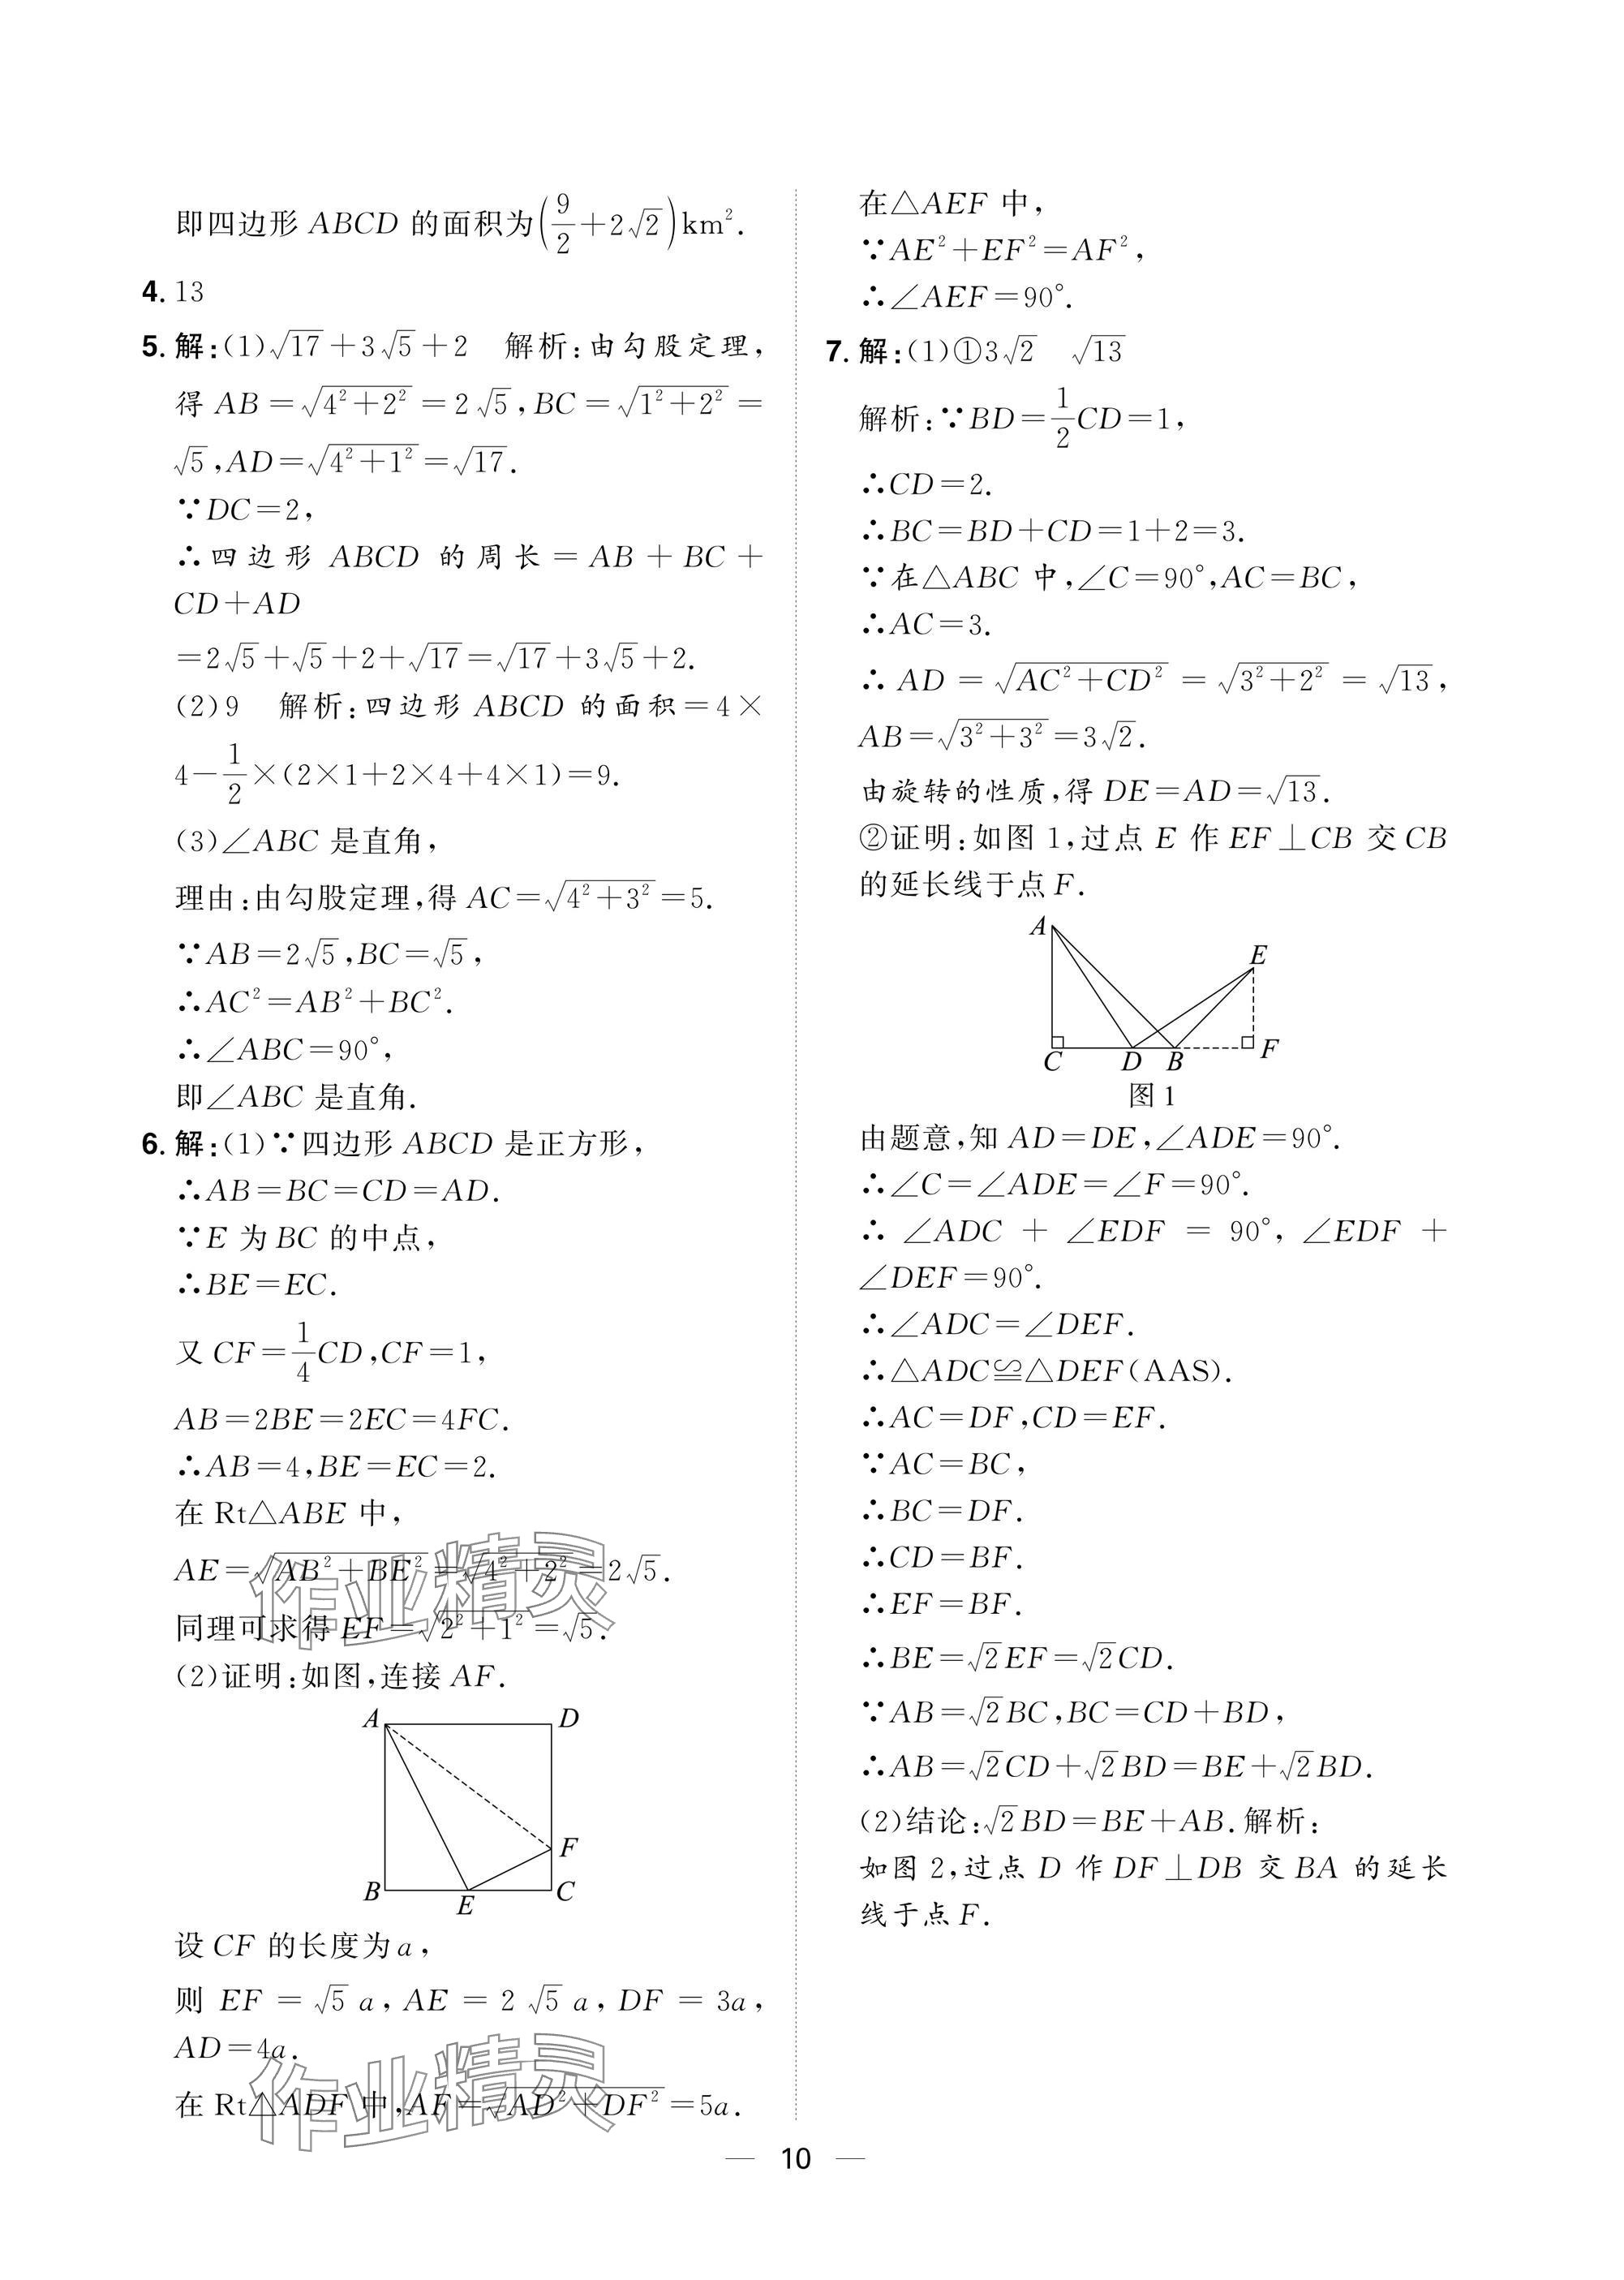 即四边形 ABCD 的面积为(9/2+2√2)km².
4. 13
5. 解:(1)√17+3√5+2 解析:由勾股定理,
得 AB=√(4²+2²)=2√5,BC=√(1²+2²)=
√5,AD=√(4²+1²)=√17.
∵DC=2,
∴四边形 ABCD 的周长=AB+BC+
CD+AD
=2√5+√5+2+√17=√17+3√5+2.
(2)9 解析:四边形 ABCD 的面积=4×
4-1/2×(2×1+2×4+4×1)=9.
(3)∠ABC 是直角,
理由:由勾股定理,得 AC=√(4²+3²)=5.
∵AB=2√5,BC=√5,
∴AC²=AB²+BC².
∴∠ABC=90°,
即∠ABC 是直角.
6. 解:(1)∵四边形 ABCD 是正方形,
∴AB=BC=CD=AD.
∵E 为 BC 的中点,
∴BE=EC.
又 CF=1/4CD,CF=1,
AB=2BE=2EC=4FC.
∴AB=4,BE=EC=2.
在 Rt△ABE 中,
AE=√(AB²+BE²)=√(4²+2²)=2√5.
同理可求得 EF=√(2²+1²)=√5.
(2)证明:如图,连接 AF.
A D
F
B E C
设 CF 的长度为 a,
则 EF=√5 a,AE=2√5 a,DF=3a,
AD=4a.
在 Rt△ADF 中,AF=√(AD²+DF²)=5a.
在△AEF 中,
∵AE²+EF²=AF²,
∴∠AEF=90°.
7. 解:(1)①3√2 √13
解析:∵BD=1/2CD=1,
∴CD=2.
∴BC=BD+CD=1+2=3.
∵在△ABC 中,∠C=90°,AC=BC,
∴AC=3.
∴AD=√(AC²+CD²)=√(3²+2²)=√13,
AB=√(3²+3²)=3√2.
由旋转的性质,得 DE=AD=√13.
②证明:如图 1,过点 E 作 EF⊥CB 交 CB
的延长线于点 F.
A
E
C D B F
图 1
由题意,知 AD=DE,∠ADE=90°.
∴∠C=∠ADE=∠F=90°.
∴∠ADC+∠EDF=90°,∠EDF+
∠DEF=90°.
∴∠ADC=∠DEF.
∴△ADC≌△DEF(AAS).
∴AC=DF,CD=EF.
∵AC=BC,
∴BC=DF.
∴CD=BF.
∴EF=BF.
∴BE=√2EF=√2CD.
∵AB=√2BC,BC=CD+BD,
∴AB=√2CD+√2BD=BE+√2BD.
(2)结论:√2BD=BE+AB.解析:
如图 2,过点 D 作 DF⊥DB 交 BA 的延长
线于点 F.
作业精灵
作业精灵
— 10 —